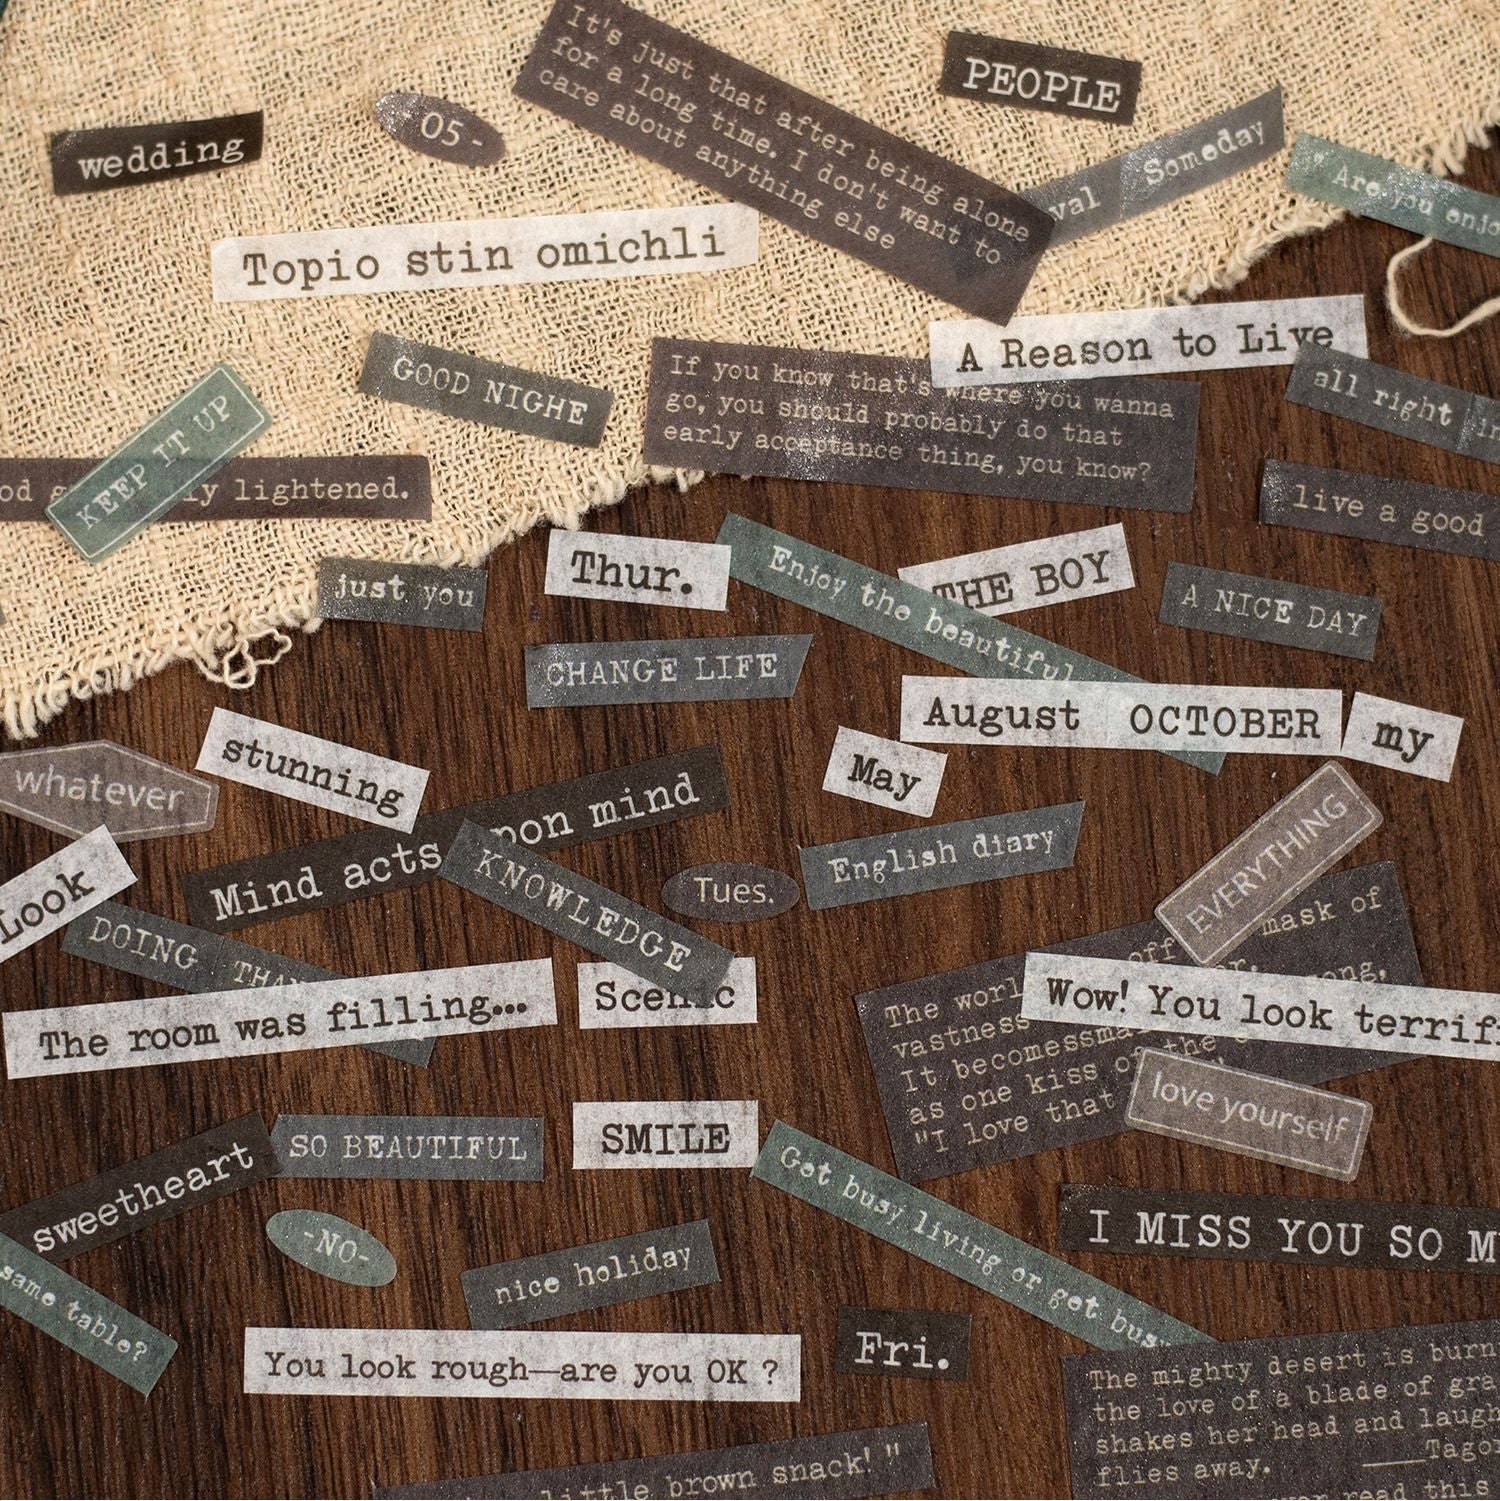 It's just that after being alone
for a long time. I don't want to
care about anything else
PEOPLE
wedding
05 -
Someday
"Are you
Topio stin omichli
A Reason to Live
GOOD NIGHE
If you know that's where you wanna
go, you should probably do that
early acceptance thing, you know?
all right
KEEP IT UP
lightened.
live a good
Thur.
Enjoy the beautiful
THE BOY
just you
A NICE DAY
CHANGE LIFE
August OCTOBER
my
stunning
whatever
May
Mind acts upon mind
KNOWLEDGE
English diary
EVERYTHING
Tues.
Look
DOING
The room was filling...
Scenic
mask of
off
The
vastness
It
as one kiss of the
"I love that
Wow! You look
love yourself
SO BEAUTIFUL
SMILE
sweetheart
Get busy living or get busy
I MISS YOU SO
-NO-
nice holiday
same table?
Fri.
You look rough—are you OK ?
The mighty desert is
the love of a blade of
shakes her head and
flies away.
read this
little brown snack!"